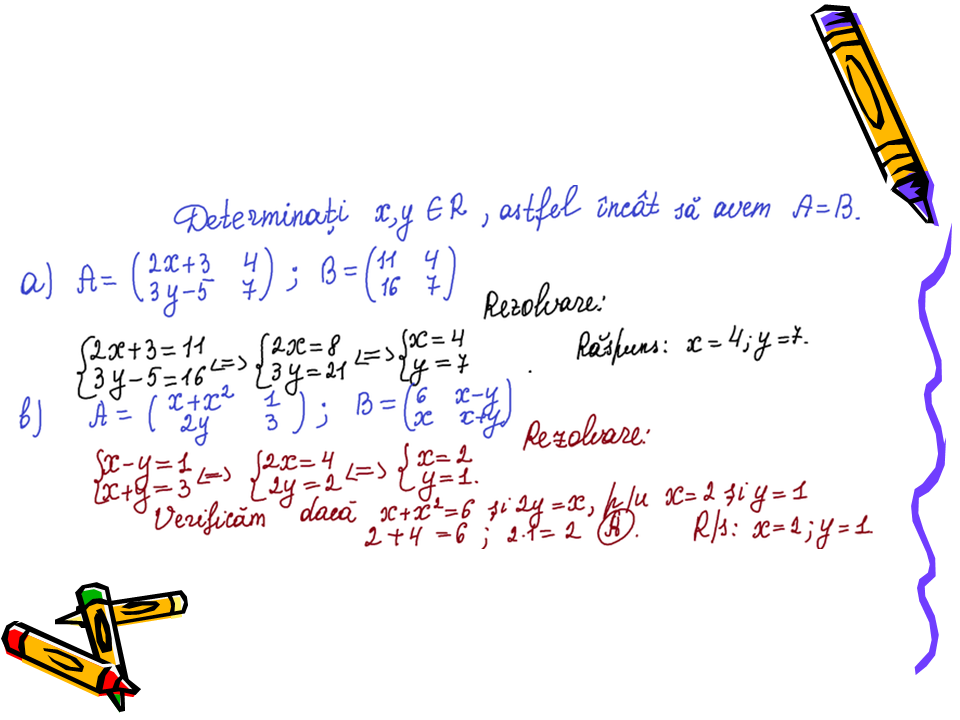 Determinați x,y ∈ R, astfel încât să avem A=B.
a) A = (2x+3 4; 3y-5 7); B = (11 4; 16 7)
Rezolvare:
{2x+3=11; 3y-5=16 <=> {2x=8; 3y=21 <=> {x=4; y=7.
Răspuns: x=4; y=7.
b) A = (x+x² 1; 2y 3); B = (6 x-y; x x+y)
Rezolvare:
{x-y=1; x+y=3 <=> {2x=4; 2y=2 <=> {x=2; y=1.
Verificăm dacă x+x²=6 și 2y=x, p/u x=2 și y=1
2+4=6; 2·1=2 (A).
R/s: x=2; y=1